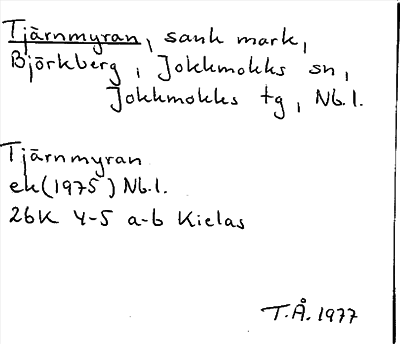 Tjärnmyran, sank mark,
Björkberg, Jokkmokks sn,
Jokkmokks tg, Nb.l.
Tjärnmyran
ek (1975) Nb.l.
26K 4-5 a-b Kielas
T.Å. 1977